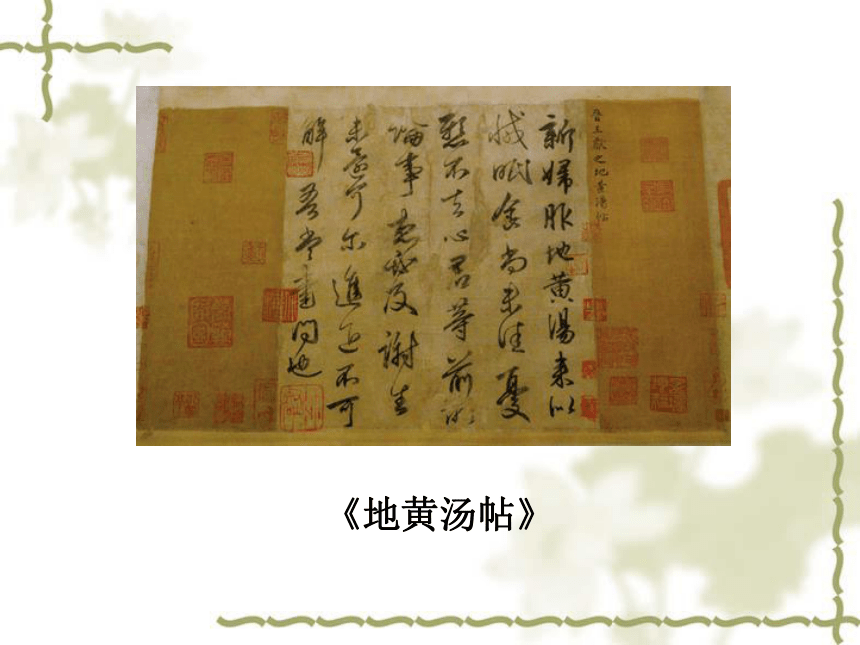 晉王獻之地黃湯帖
新婦服地黄湯来似
減眠食尚未佳憂
懸不去心君等前所
論事想必及謝生
未還可尔進退不可
解吾當書問也
《地黄汤帖》